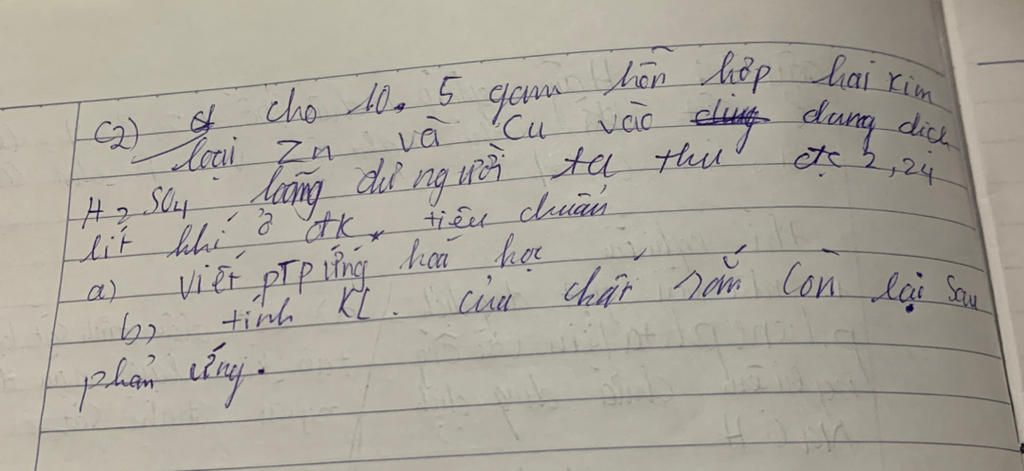 C2) Cho 10.5 gam hỗn hợp hai kim
loại Zn và Cu vào dung dung dịch
H2SO4 loãng dư người ta thu đc 2,24
lít khí ở đk tiêu chuẩn
a) viết PTP ứng hoá học
b) tính KL. của chất rắn còn lại sau
phản ứng.